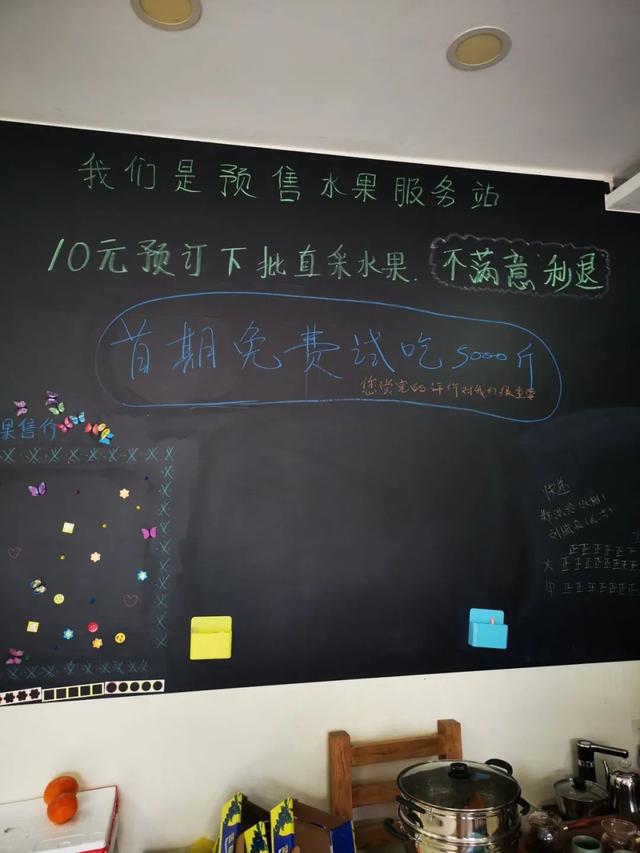 我们是预售水果服务站
10元预订下批直采水果. 不满意秒退
首期免费试吃5000斤
您尝完的评价对我们很重要
果售价
快递
正正正正正
大 正正正正正正正
中 正正正正正正